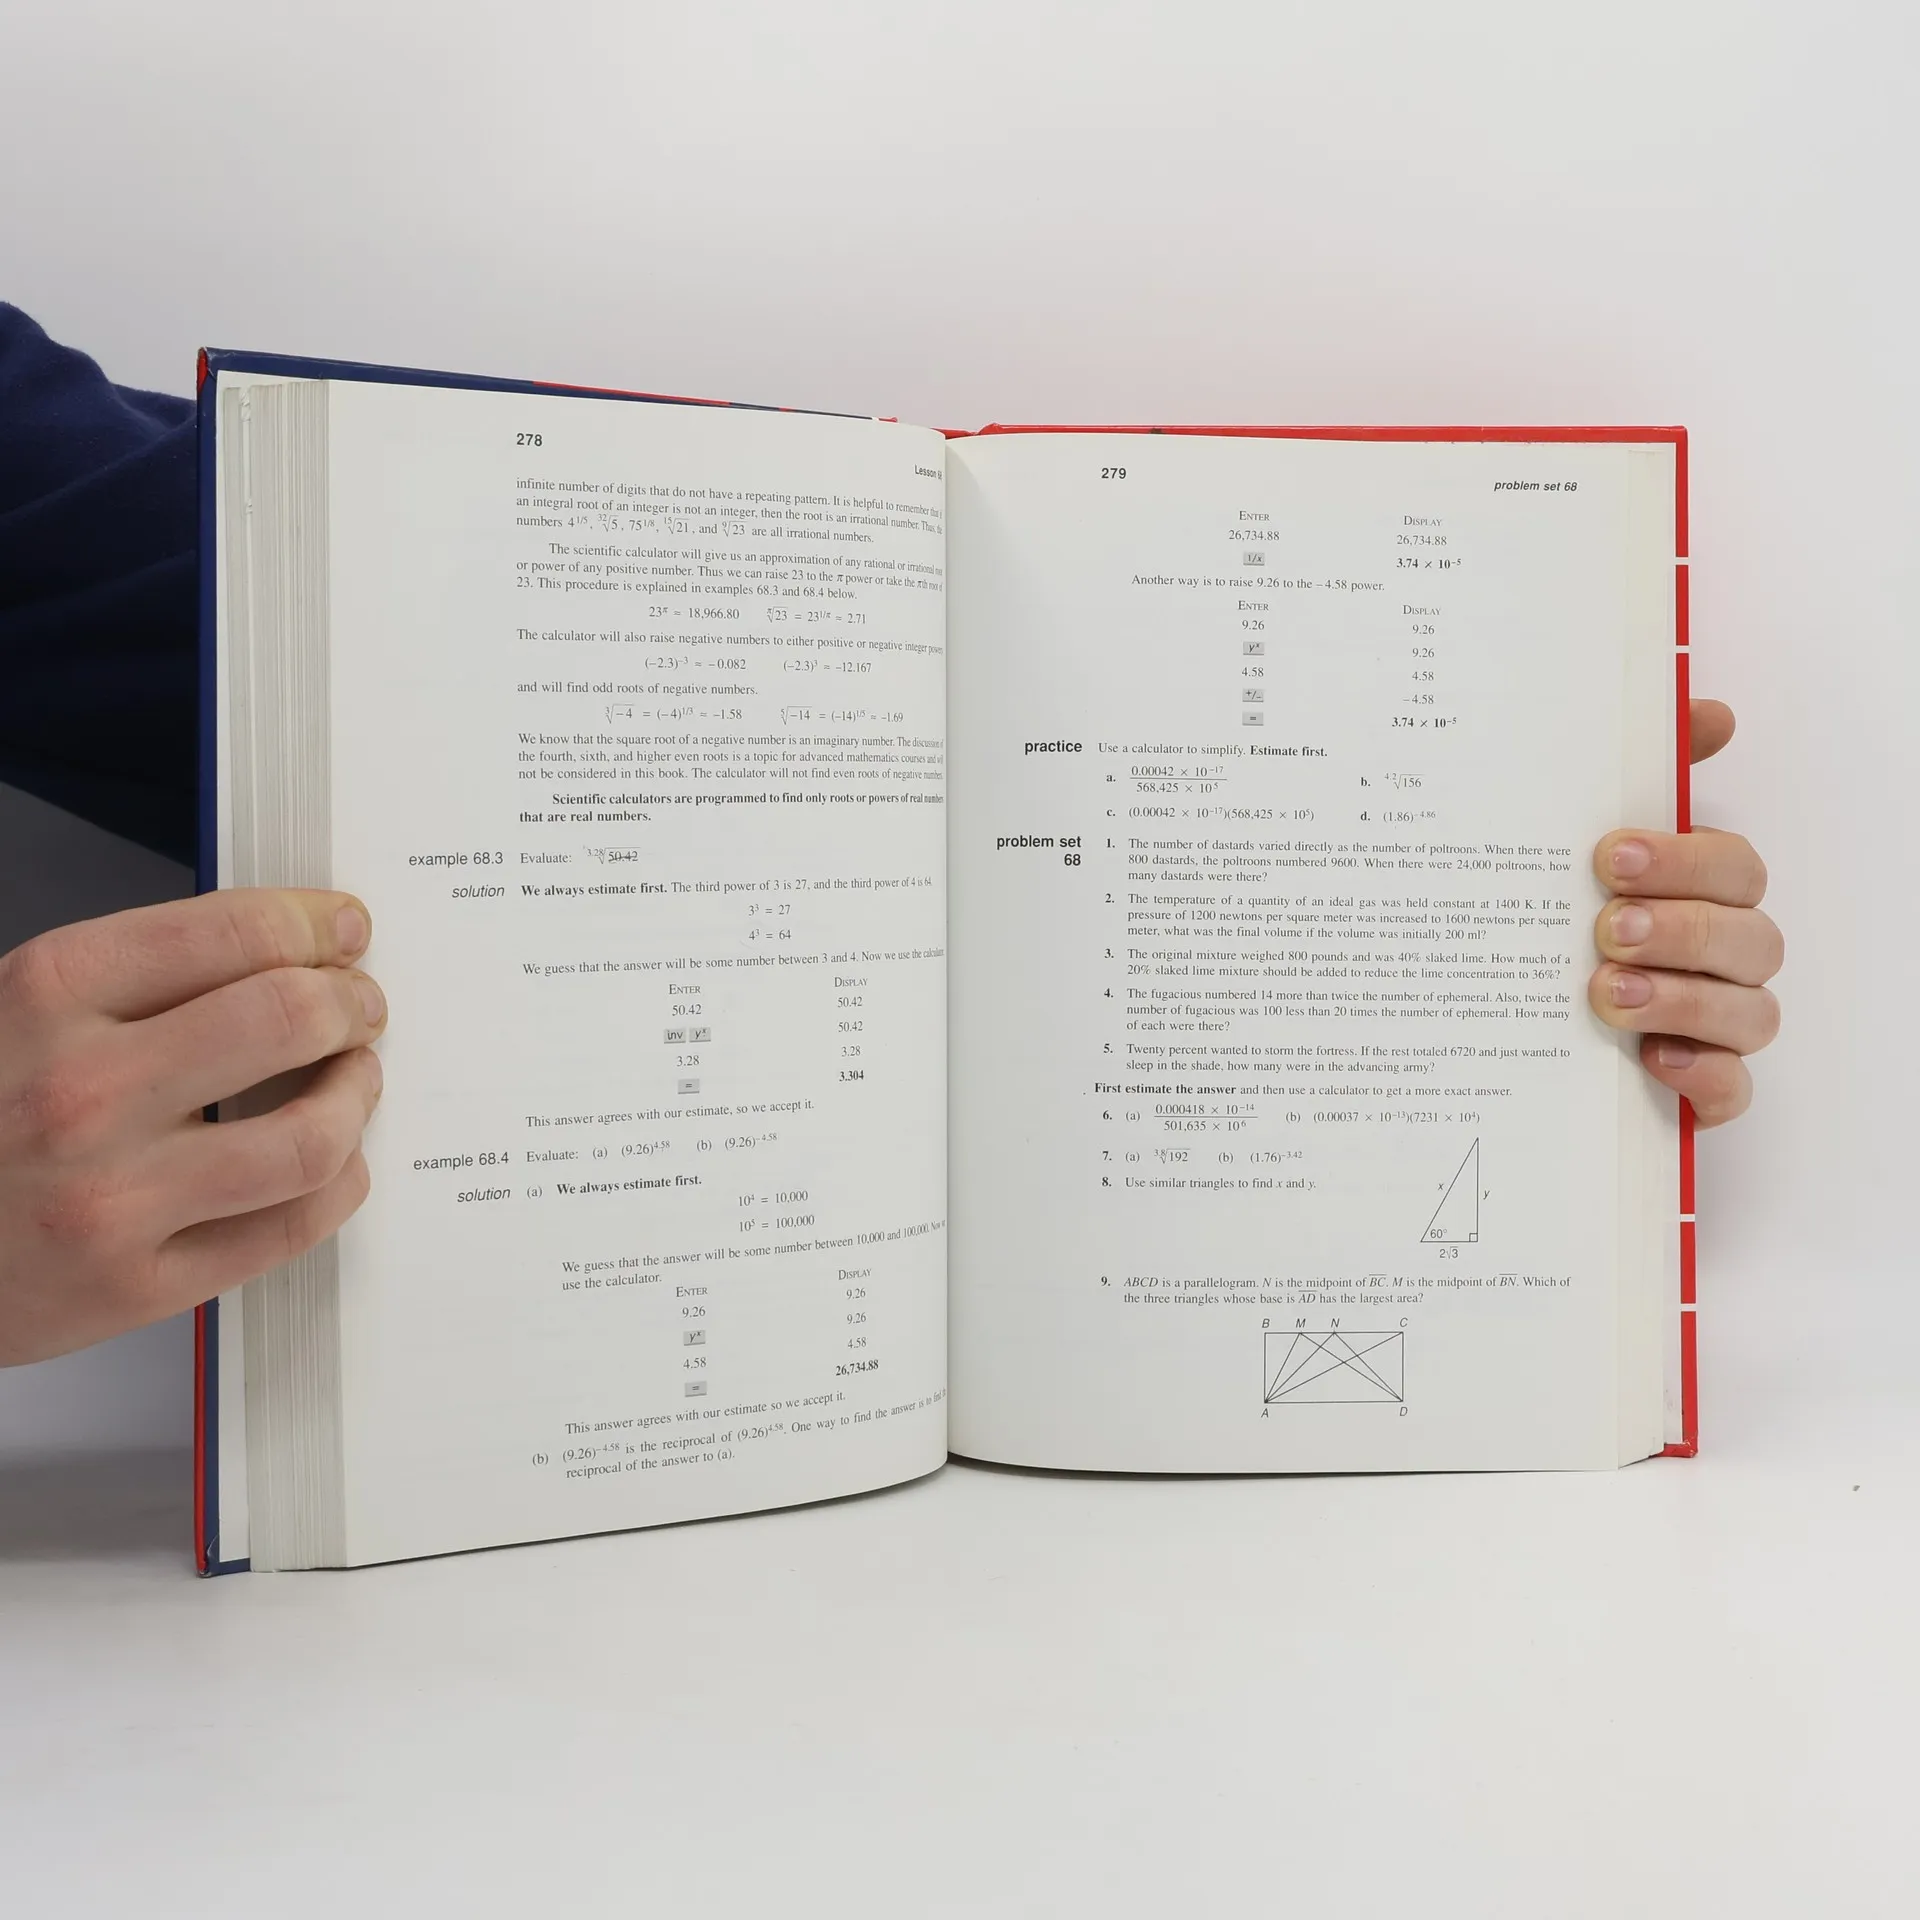 278
Lesson 68
infinite number of digits that do not have a repeating pattern. It is helpful to remember that if
an integral root of an integer is not an integer, then the root is an irrational number. Thus, the
numbers 4^1/5, ³²√5, 75^1/8, ¹⁵√21, and ⁹√23 are all irrational numbers.
The scientific calculator will give us an approximation of any rational or irrational root
or power of any positive number. Thus we can raise 23 to the π power or take the πth root of
23. This procedure is explained in examples 68.3 and 68.4 below.
23^π ≈ 18,966.80 π√23 = 23^1/π ≈ 2.71
The calculator will also raise negative numbers to either positive or negative integer powers
(−2.3)^−3 ≈ −0.082 (−2.3)³ ≈ −12.167
and will find odd roots of negative numbers.
³√−4 = (−4)^1/3 ≈ −1.58 ⁵√−14 = (−14)^1/5 ≈ −1.69
We know that the square root of a negative number is an imaginary number. The discussion of
the fourth, sixth, and higher even roots is a topic for advanced mathematics courses and will
not be considered in this book. The calculator will not find even roots of negative numbers.
Scientific calculators are programmed to find only roots or powers of real numbers
that are real numbers.
example 68.3 Evaluate: 3.28√50.42
solution We always estimate first. The third power of 3 is 27, and the third power of 4 is 64.
3³ = 27
4³ = 64
We guess that the answer will be some number between 3 and 4. Now we use the calculator
ENTER DISPLAY
50.42 50.42
inv y^x 50.42
3.28 3.28
= 3.304
This answer agrees with our estimate, so we accept it.
example 68.4 Evaluate: (a) (9.26)^4.58 (b) (9.26)^−4.58
solution (a) We always estimate first.
10⁴ = 10,000
10⁵ = 100,000
We guess that the answer will be some number between 10,000 and 100,000. Now we
use the calculator.
ENTER DISPLAY
9.26 9.26
y^x 9.26
4.58 4.58
= 26,734.88
This answer agrees with our estimate so we accept it.
(b) (9.26)^−4.58 is the reciprocal of (9.26)^4.58. One way to find the answer is to find the
reciprocal of the answer to (a).
279
problem set 68
ENTER DISPLAY
26,734.88 26,734.88
1/x 3.74 × 10^−5
Another way is to raise 9.26 to the −4.58 power.
ENTER DISPLAY
9.26 9.26
y^x 9.26
4.58 4.58
+/− −4.58
= 3.74 × 10^−5
practice Use a calculator to simplify. Estimate first.
a. 0.00042 × 10^−17 / 568,425 × 10⁵ b. 4.2√156
c. (0.00042 × 10^−17)(568,425 × 10⁵) d. (1.86)^−4.86
problem set 68
1. The number of dastards varied directly as the number of poltroons. When there were
800 dastards, the poltroons numbered 9600. When there were 24,000 poltroons, how
many dastards were there?
2. The temperature of a quantity of an ideal gas was held constant at 1400 K. If the
pressure of 1200 newtons per square meter was increased to 1600 newtons per square
meter, what was the final volume if the volume was initially 200 ml?
3. The original mixture weighed 800 pounds and was 40% slaked lime. How much of a
20% slaked lime mixture should be added to reduce the lime concentration to 36%?
4. The fugacious numbered 14 more than twice the number of ephemeral. Also, twice the
number of fugacious was 100 less than 20 times the number of ephemeral. How many
of each were there?
5. Twenty percent wanted to storm the fortress. If the rest totaled 6720 and just wanted to
sleep in the shade, how many were in the advancing army?
First estimate the answer and then use a calculator to get a more exact answer.
6. (a) 0.000418 × 10^−14 / 501,635 × 10⁶ (b) (0.00037 × 10^−13)(7231 × 10⁴)
7. (a) 3.8√192 (b) (1.76)^−3.42
8. Use similar triangles to find x and y.
x y
60°
2√3
9. ABCD is a parallelogram. N is the midpoint of BC. M is the midpoint of BN. Which of
the three triangles whose base is AD has the largest area?
B M N C
A D